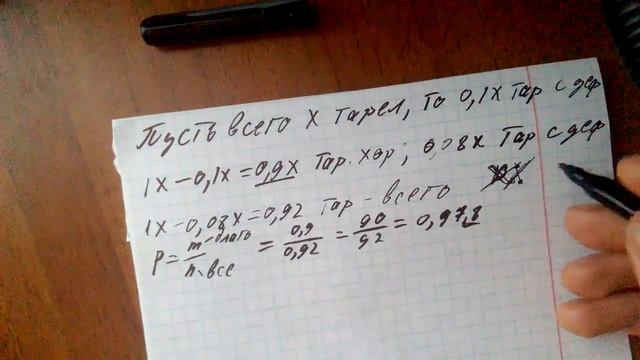 Пусть всего x тарел, то 0,1x тар с деф
1x-0,1x=0,9x тар. хор; 0,08x тар с деф
1x-0,08x=0,92 тар-всего
P=m-благо/n-все=0,9/0,92=90/92=0,978